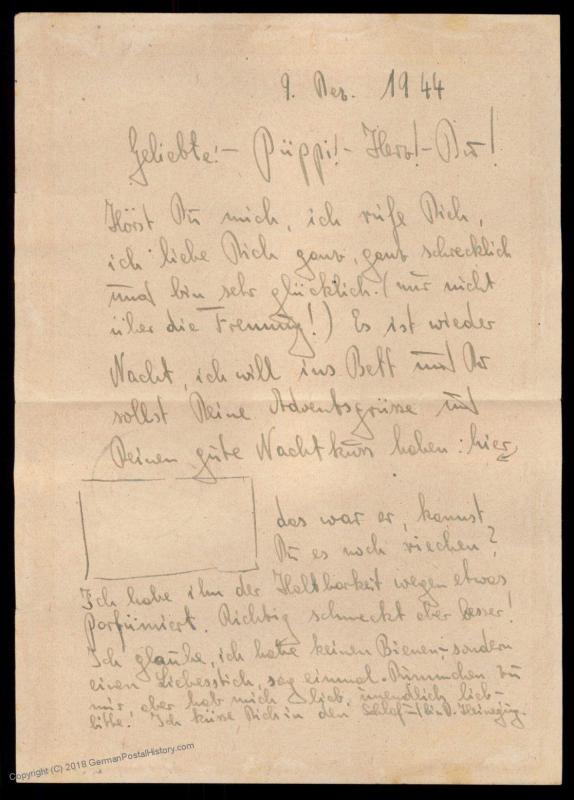 9. Dez. 1944
Geliebte! - Püppi! - Herz! - Du!
Hörst Du mich, ich rufe Dich,
ich liebe Dich ganz, ganz schrecklich
und bin sehr glücklich. (nur nicht
über die Trennung!) Es ist wieder
Nacht, ich will ins Bett und Du
sollst Deine Adventsgrüsse und
Deinen gute Nachtkuss haben: hier
das war er, kannst
Du es noch riechen?
Ich habe ihn der Haltbarkeit wegen etwas
parfümiert. Richtig schmeckt aber besser!
Ich glaube, ich habe keinen Bienen-, sondern
einen Liebesstich, sag einmal Dummchen zu
mir, aber hab mich lieb, unendlich lieb -
bitte! Ich küsse Dich in den Schlaf
Copyright (C) 2018 GermanPostalHistory.com